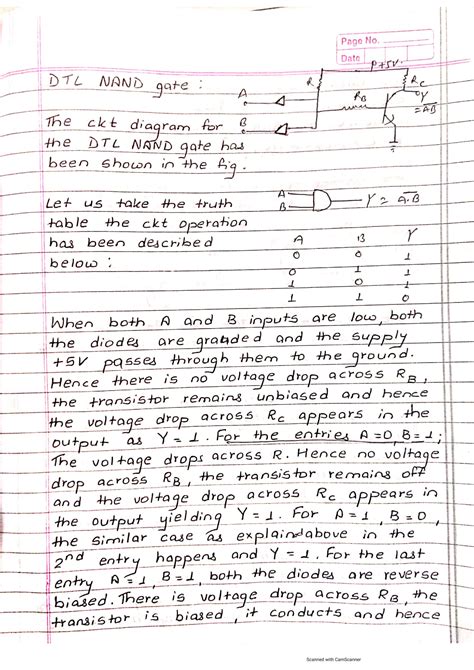 Page No.
Date
DTL NAND gate :
The ckt diagram for
the DTL NAND gate has
been shown in the fig.
A
B
R
P+5V
RB
RC
Y
=A̅B̅
Let us take the truth
table the ckt operation
has been described
below :
A
B
Y = A̅.B̅
A B Y
0 0 1
0 1 1
1 0 1
1 1 0
When both A and B inputs are low, both
the diodes are graded and the supply
+5V passes through them to the ground.
Hence there is no voltage drop across RB,
the transistor remains unbiased and hence
the voltage drop across RC appears in the
output as Y = 1. For the entries A=0, B=1;
The voltage drops across R. Hence no voltage
drop across RB, the transistor remains off
and the voltage drop across RC appears in
the output yielding Y = 1. For A = 1, B = 0,
the similar case as explaindabove in the
2nd entry happens and Y = 1. For the last
entry A = 1, B = 1, both the diodes are reverse
biased. There is voltage drop across RB, the
transistor is biased, it conducts and hence
Scanned with CamScanner